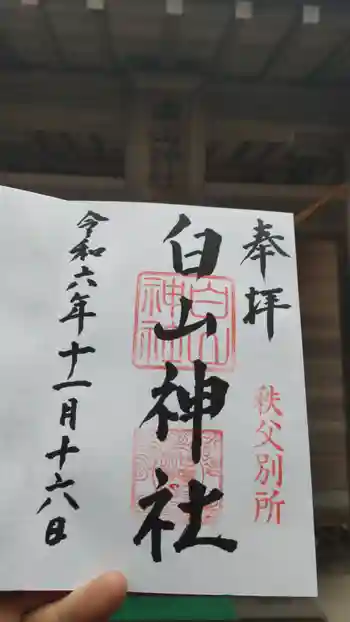 奉拝
秩父別所
白山神社
白山
神社
令和六年十一月十六日